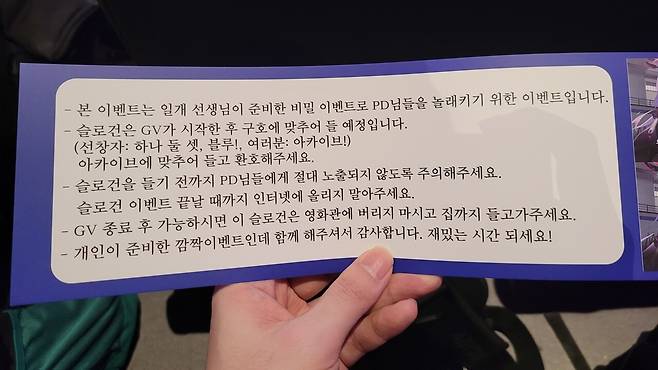 - 본 이벤트는 일개 선생님이 준비한 비밀 이벤트로 PD님들을 놀래키기 위한 이벤트입니다.
- 슬로건은 GV가 시작한 후 구호에 맞추어 들 예정입니다.
(선창자: 하나 둘 셋, 블루!, 여러분: 아카이브!)
아카이브에 맞추어 들고 환호해주세요.
- 슬로건을 들기 전까지 PD님들에게 절대 노출되지 않도록 주의해주세요.
슬로건 이벤트 끝날 때까지 인터넷에 올리지 말아주세요.
- GV 종료 후 가능하시면 이 슬로건은 영화관에 버리지 마시고 집까지 들고가주세요.
- 개인이 준비한 깜짝이벤트인데 함께 해주셔서 감사합니다. 재밌는 시간 되세요!